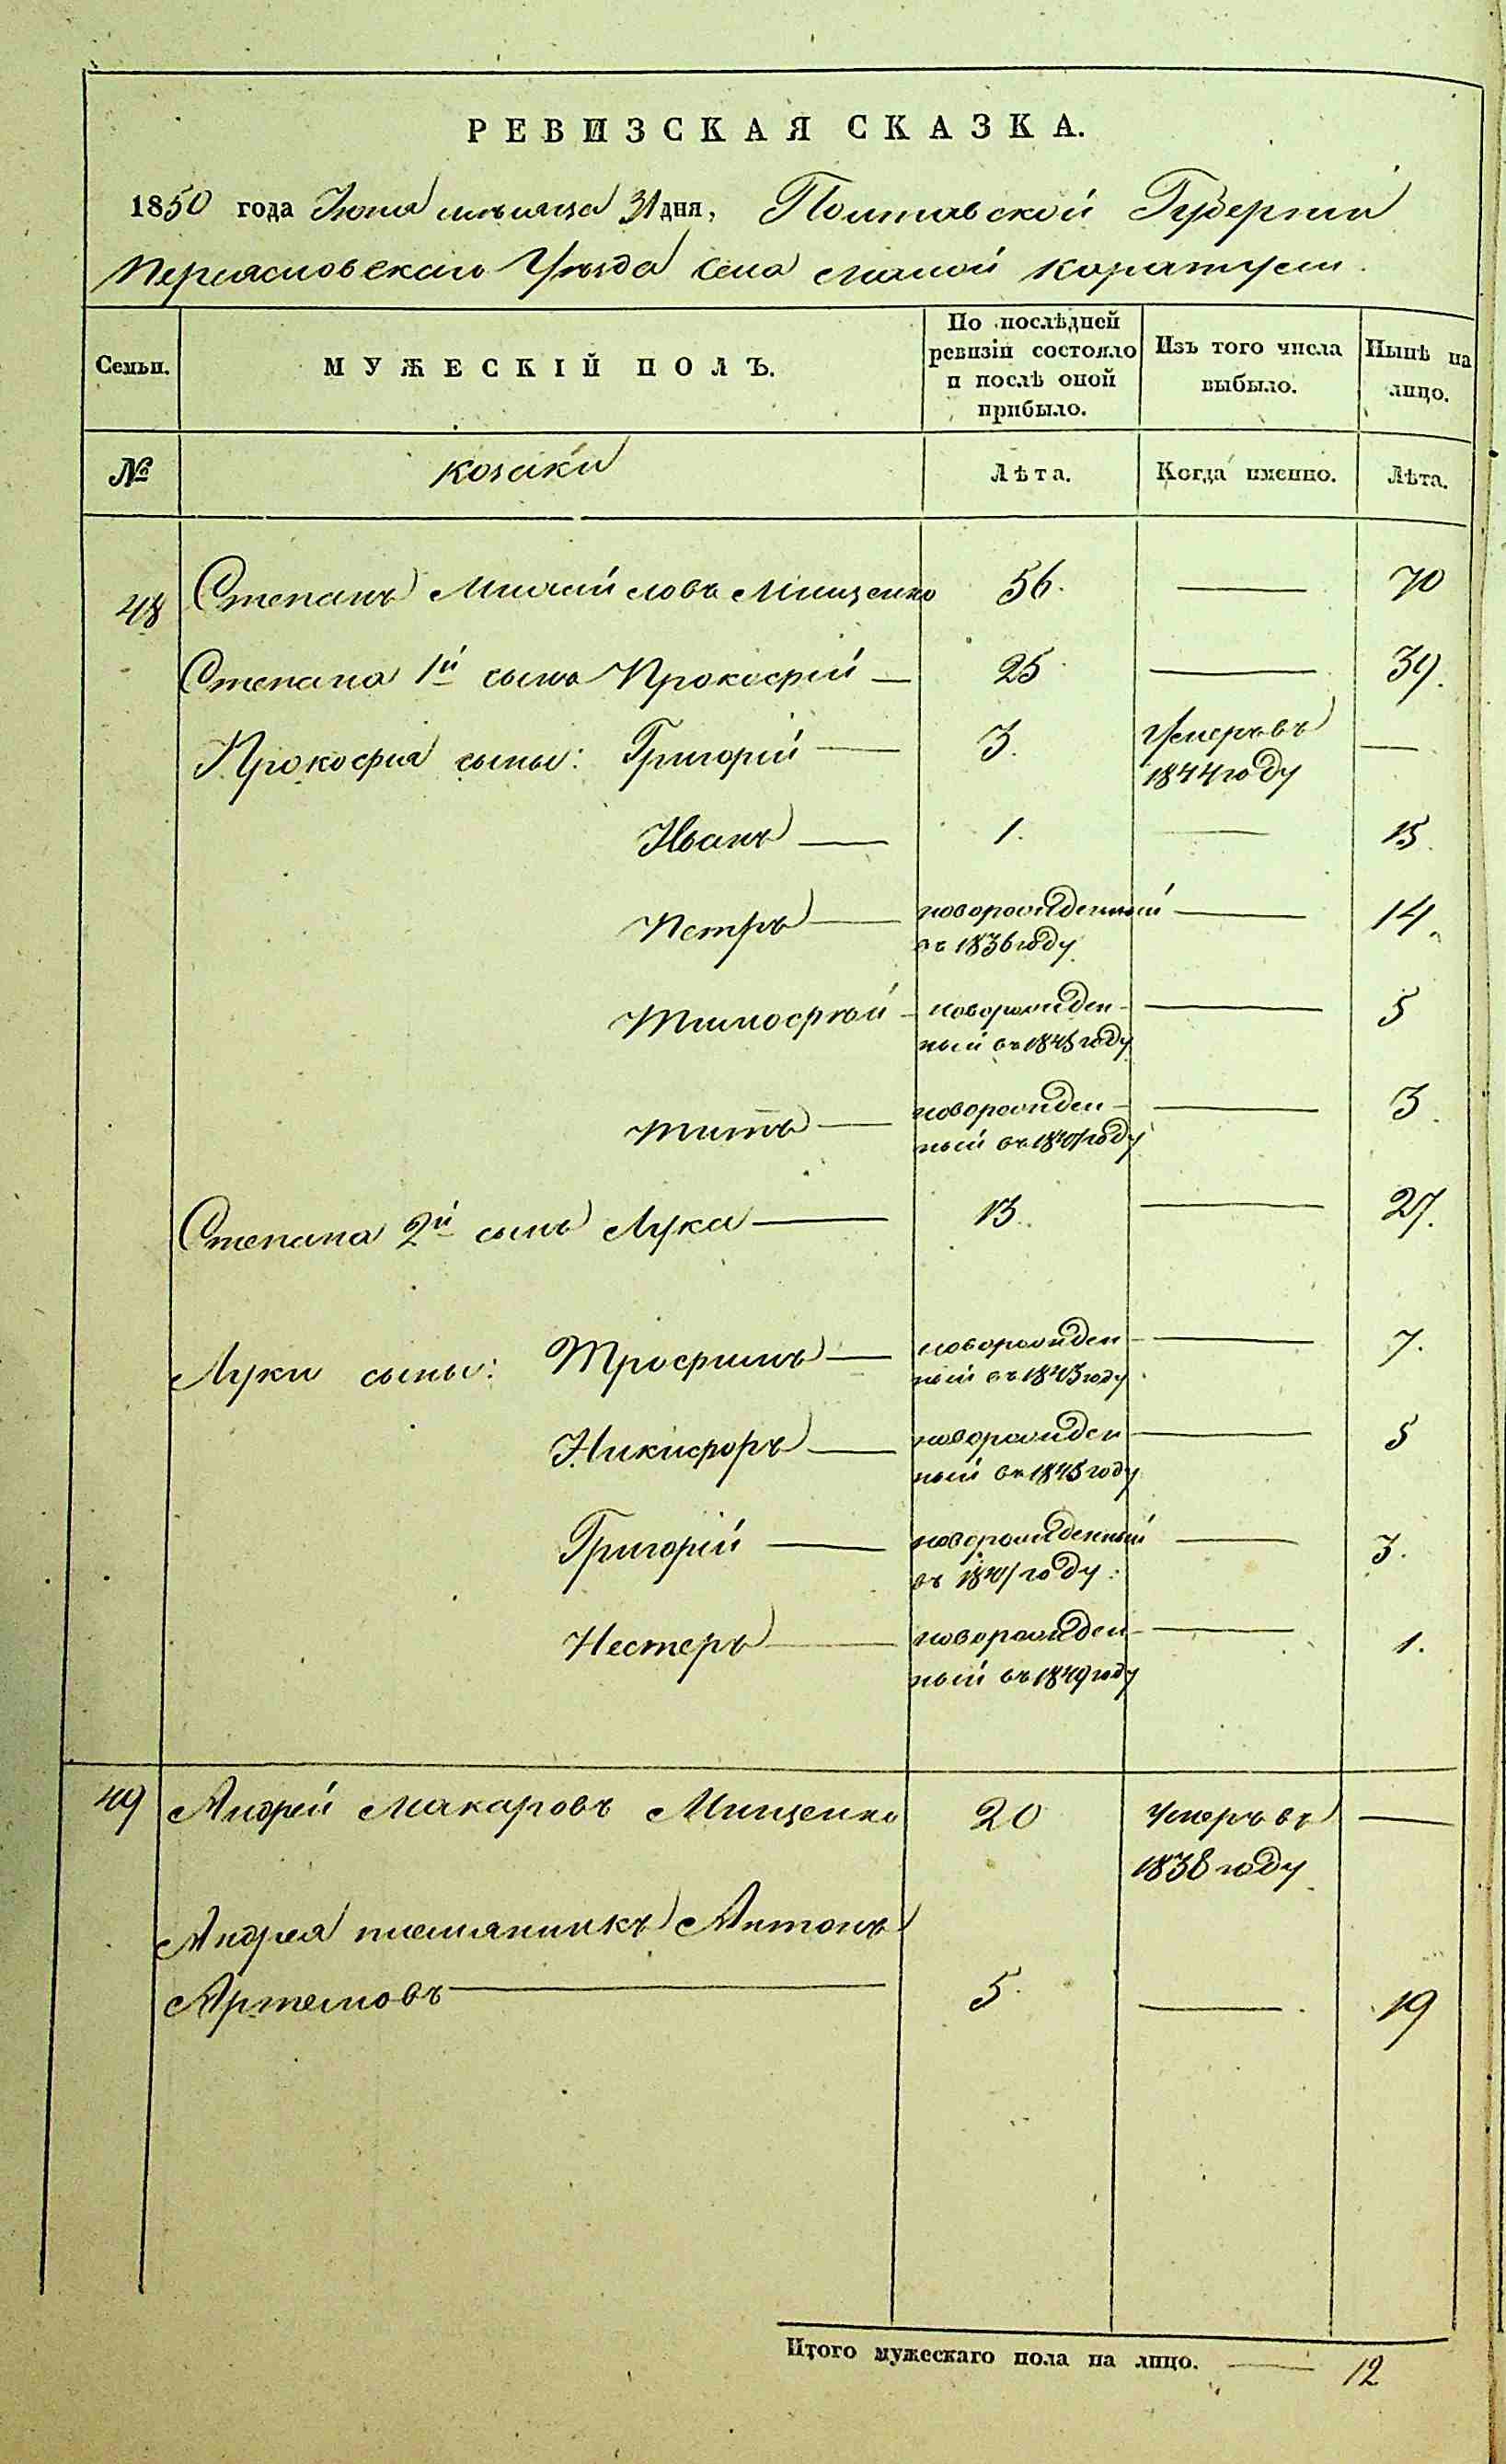 РЕВИЗСКАЯ СКАЗКА.
1850 года Іюля мѣсяца 31 дня, Полтавской Губерніи
Переяславскаго Уѣзда Села Малой Каратули.
Семьи. МУЖЕСКІЙ ПОЛЪ. По послѣдней ревизіи состояло и послѣ оной прибыло. Изъ того числа выбыло. Нынѣ на лицо.
№ козаки Лѣта. Когда именно. Лѣта.
48 Степанъ Михайловъ Мищенко 56. — 70
Степана 1й сынъ Прокофій — 25 — 39.
Прокофія сыны: Григорій — 3. Умеръ въ —
1844 году
Иванъ — 1. — 15.
Петръ — новорожденный — 14.
въ 1836 году
Тимофѣй — новорожден- — 5
ный въ 1845 году
Титъ — новорожден- — 3.
ный въ 1847 году
Степана 2й сынъ Лука — 13. — 27.
Луки сыны: Трофимъ — новорожден- — 7.
ный въ 1843 году
Никифоръ — новорожден — 5
ный въ 1845 году
Григорій — новорожденный — 3.
въ 1847 году.
Нестеръ — новорожден- — 1.
ный въ 1849 году
49 Андрей Макаровъ Мищенко 20 Умеръ въ —
1838 году
Андрея племянникъ Антонъ
Артемовъ — 5. — 19
Итого мужескаго пола на лицо. — 12